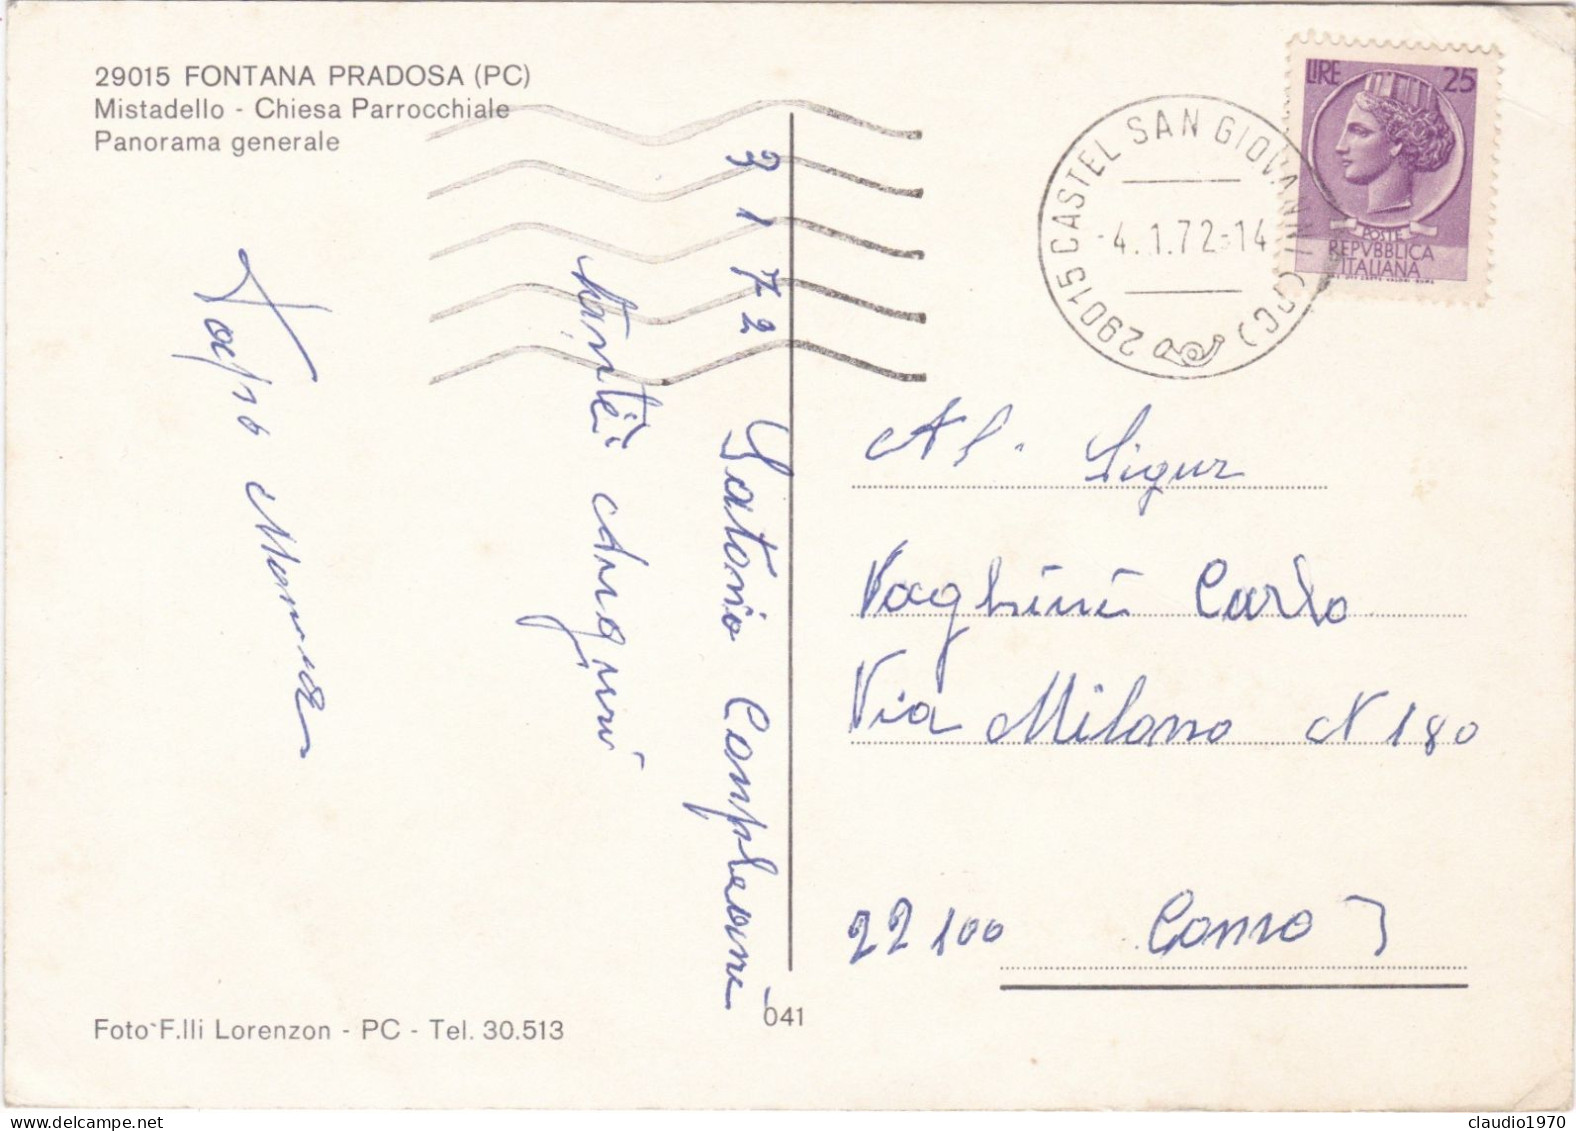 29015 FONTANA PRADOSA (PC)
Mistadello - Chiesa Parrocchiale
Panorama generale
3 1 72
tanti Auguri
LIRE 25
POSTE
REPVBBLICA
ITALIANA
29015 CASTEL SAN GIOVANNI (PC)
-4.1.72-14
Al. Sigur
Vaghini Carlo
Via Milano N 180
22100 Como
Foto F.lli Lorenzon - PC - Tel. 30.513
041
claudio1970